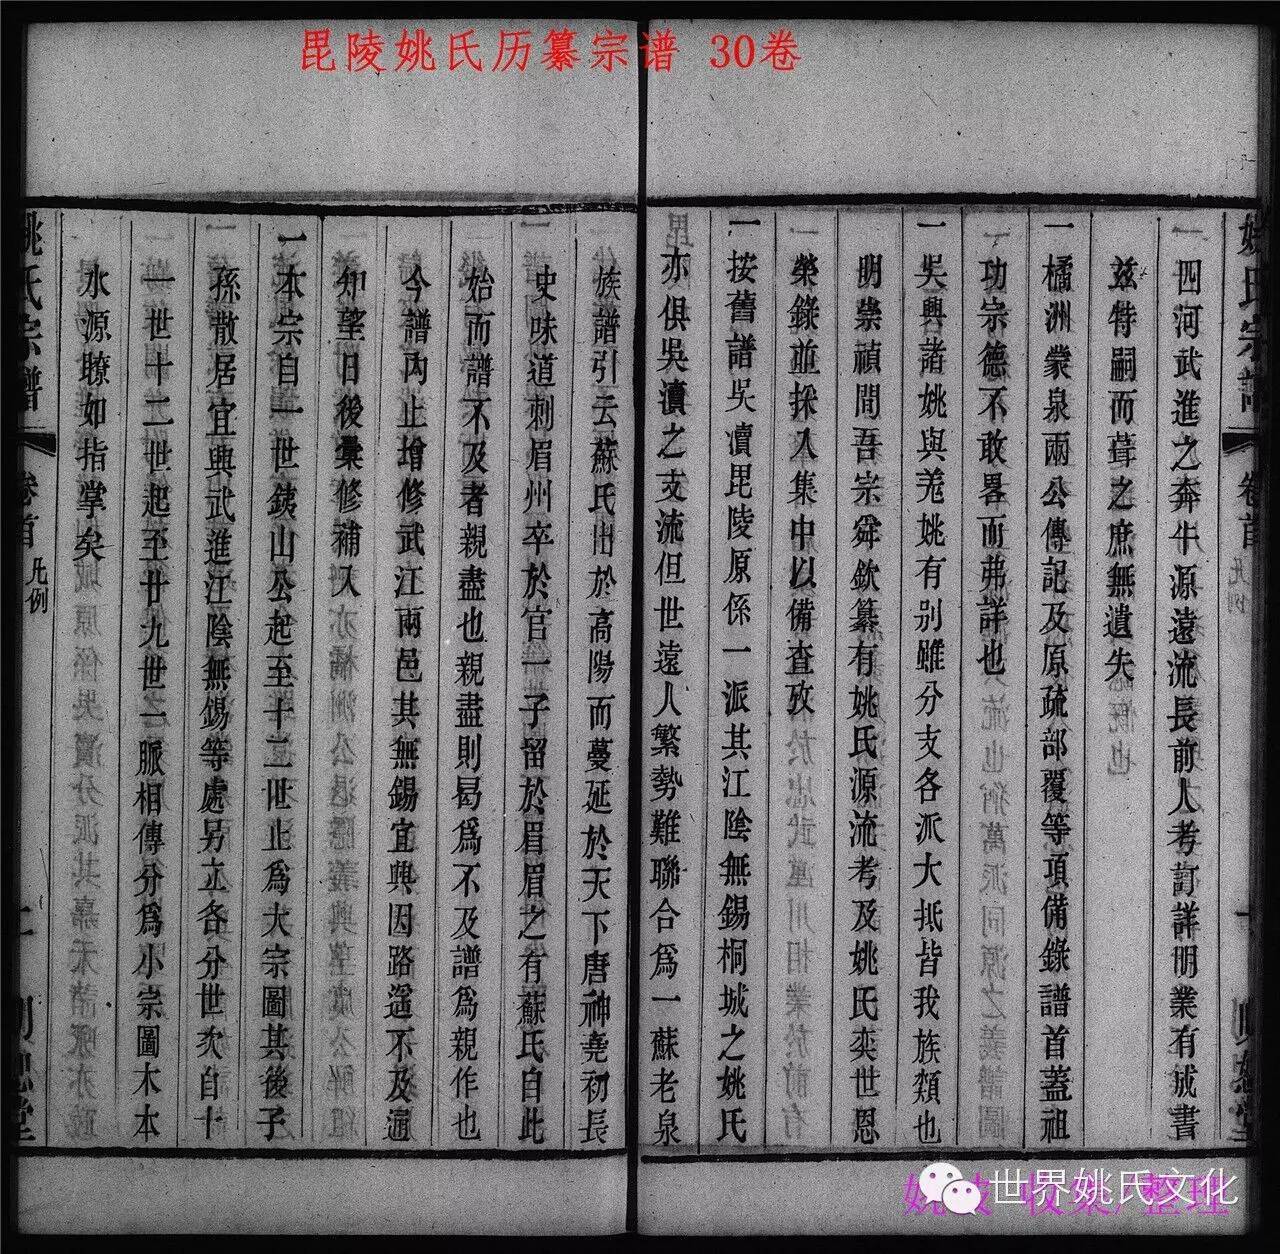 毘陵姚氏历纂宗谱 30卷
四河武進之奔牛源遠流長前人考訂詳明業有成書
茲特嗣而葺之庶無遺失
一橘洲蒙泉兩公傳記及原疏部覆等項備錄譜首蓋祖
功宗德不敢畧而弗詳也
一吳興諸姚與羗姚有别雖分支各派大抵皆我族類也
明崇禎間吾宗舜欽纂有姚氏源流考及姚氏奕世恩
榮錄並採入集中以備查攷
一按舊譜吳瀆毘陵原係一派其江陰無錫桐城之姚氏
亦俱吳瀆之支流但世遠人繁勢難聯合爲一蘇老泉
族譜引云蘇氏出於高陽而蔓延於天下唐神堯初長
史味道刺眉州卒於官一子留於眉眉之有蘇氏自此
始而譜不及者親盡也親盡則曷爲不及譜爲親作也
今譜內止增修武江兩邑其無錫宜興因路遥不及遍
知望日後彙修補入
一本宗自一世銕山公起至十二世止爲大宗圖其後子
孫散居宜興武進江陰無錫等處另立各分世次自十
一世十二世起至廿九世一脈相傳分爲小宗圖木本
水源瞭如指掌矣
姚氏宗譜
卷首
凡例
世界姚氏文化
收集/整理